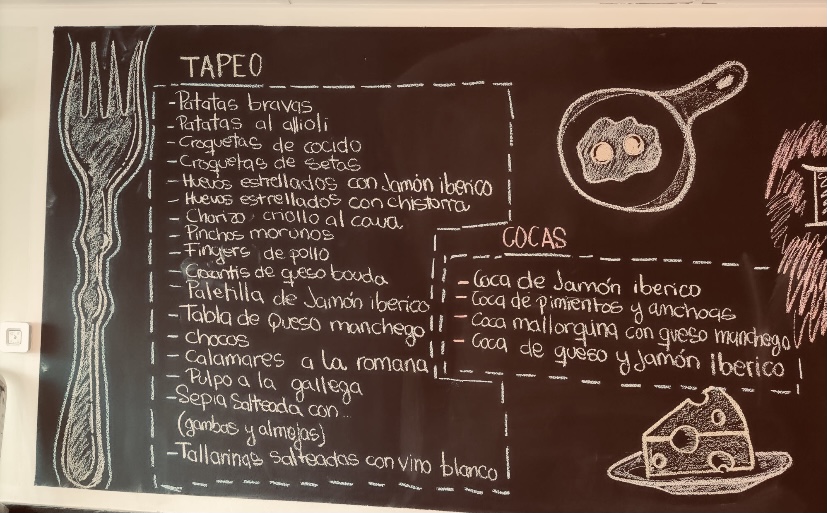 TAPEO
-Patatas bravas
-Patatas al allioli
-Croquetas de cocido
-Croquetas de setas
-Huevos estrellados con Jamón iberico
-Huevos estrellados con chistorra
-Chorizo criollo al cava
-Pinchos morunos
-Fingers de pollo
-Crocantis de queso bouda
-Paletilla de Jamón iberico
-Tabla de Queso manchego
-Chocos
-Calamares a la romana
-Pulpo a la gallega
-Sepia Salteada con..
(gambas y almejas)
-Tallarinas salteadas con vino blanco
COCAS
-Coca de Jamón iberico
-Coca de pimientos y anchoas
-Coca mallorquina con queso manchego
-Coca de queso y Jamón Iberico